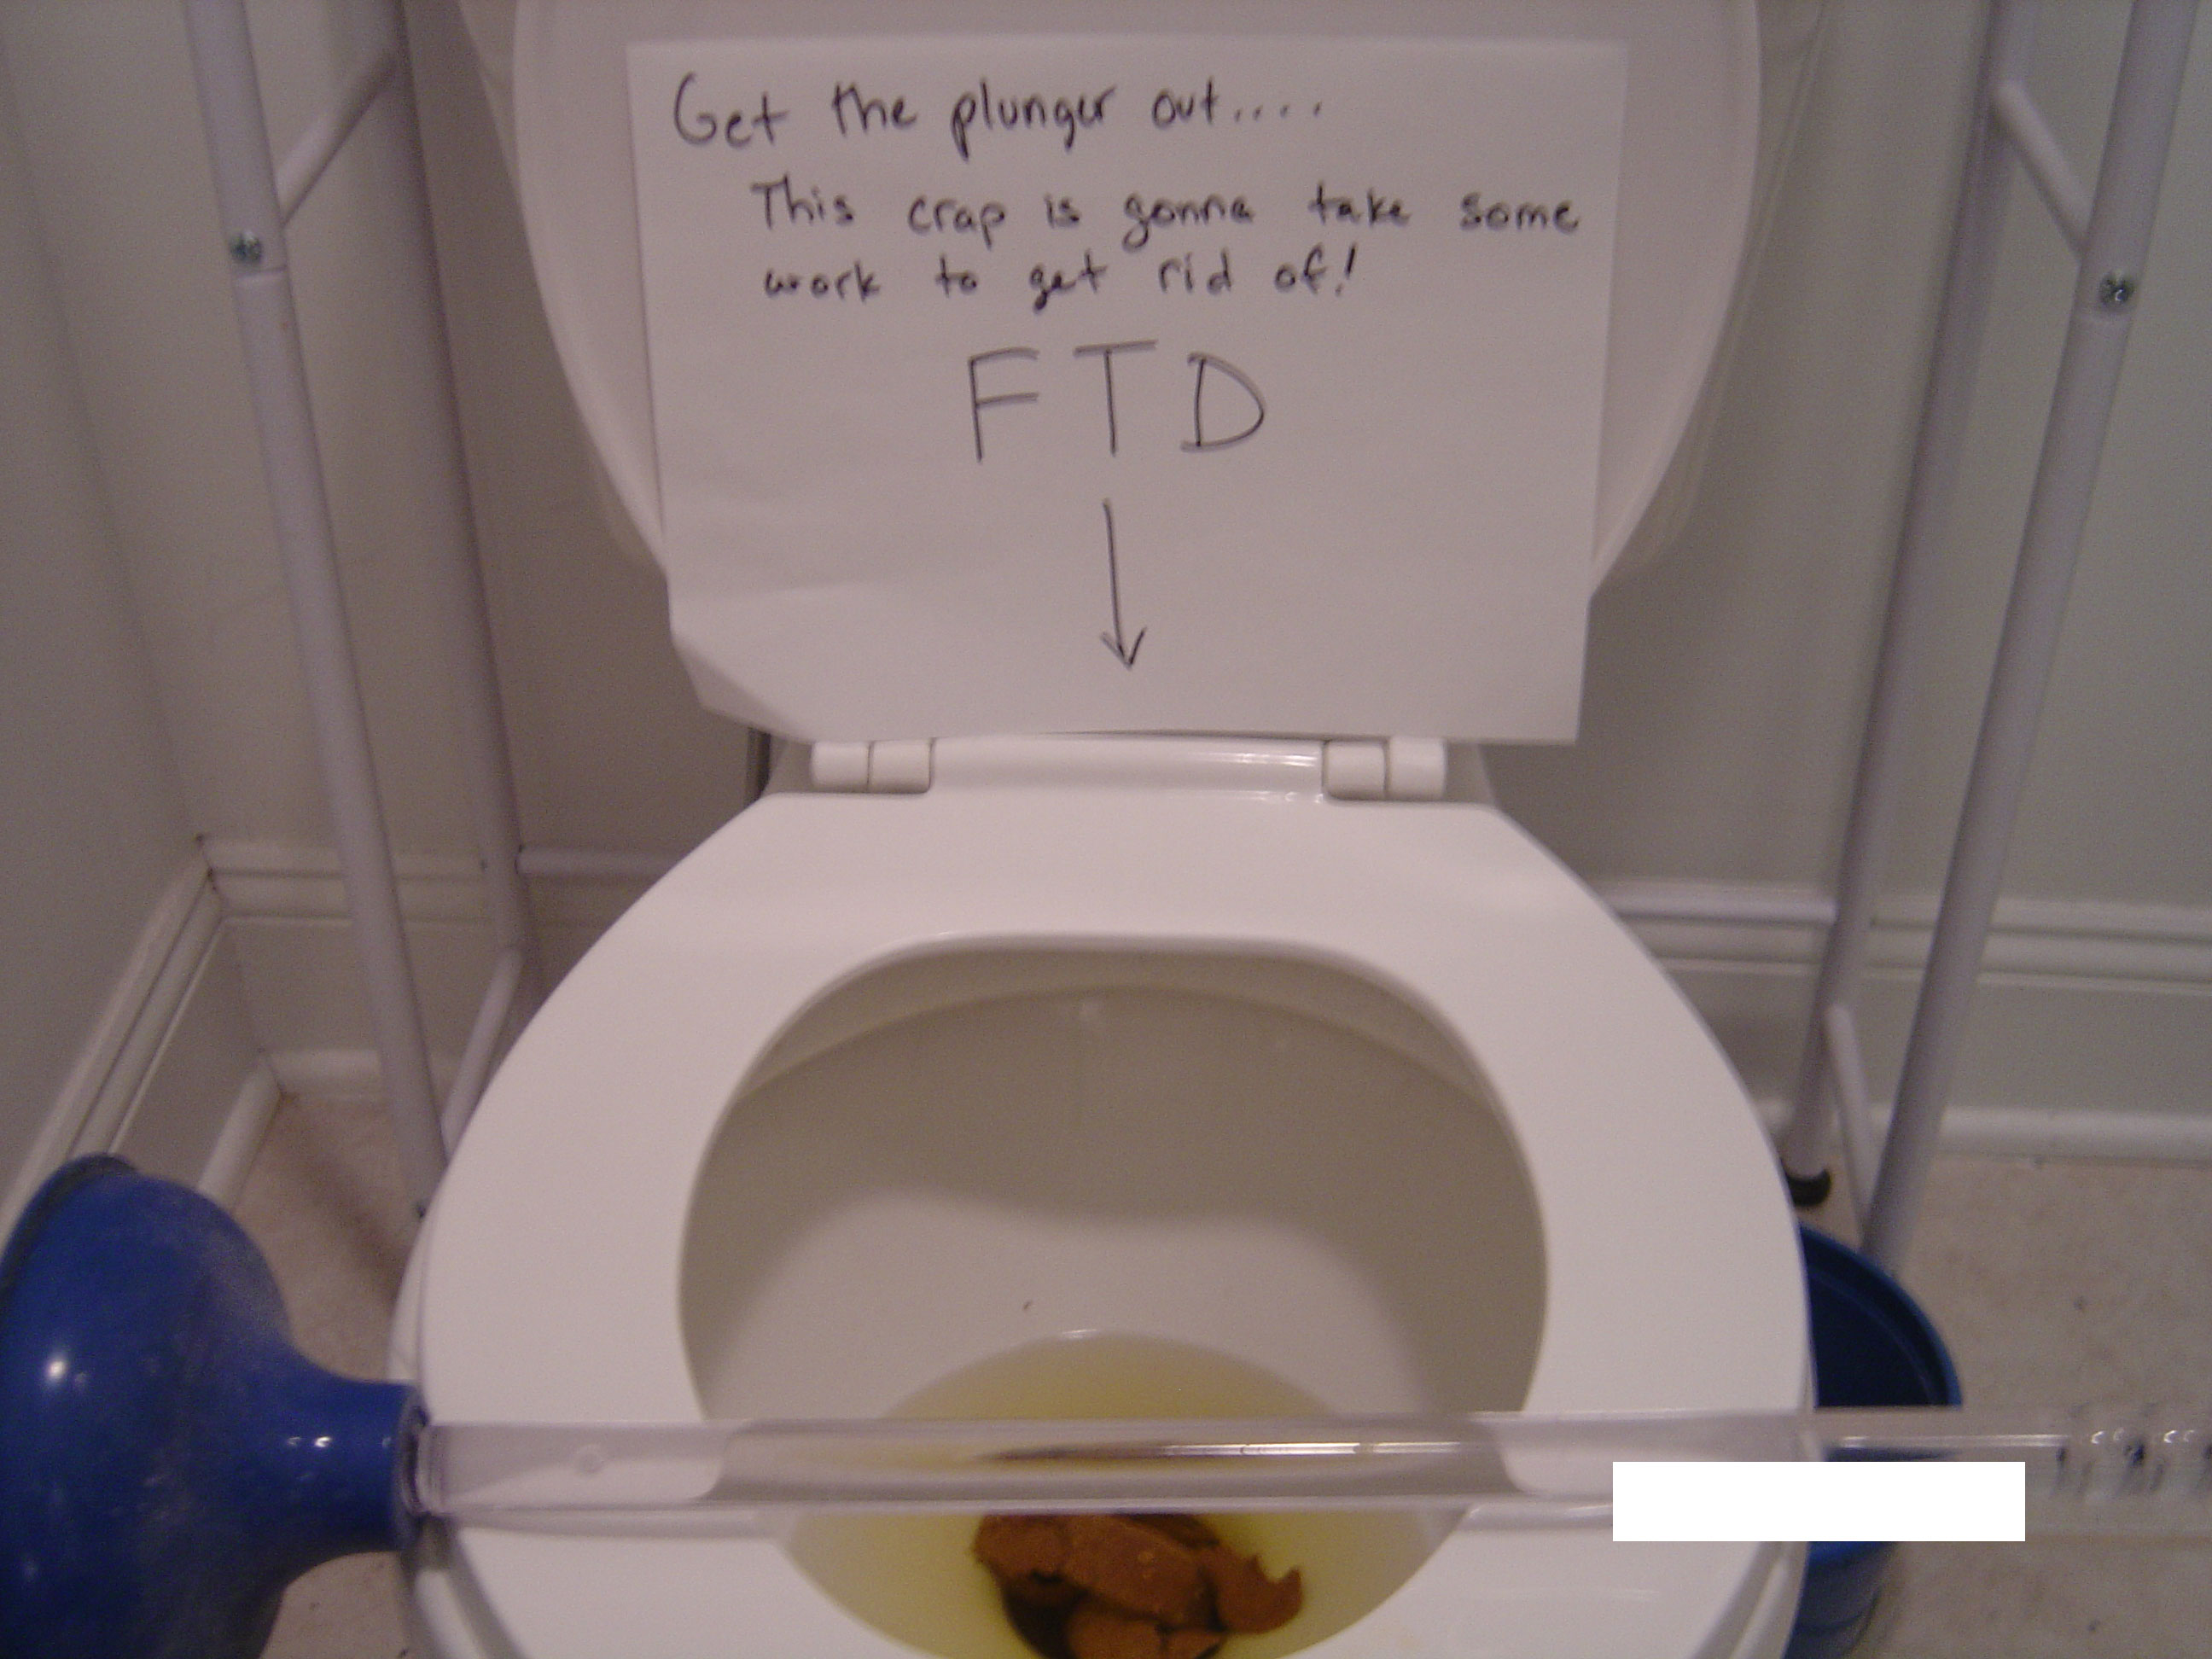 Get the plunger out....
This crap is gonna take some
work to get rid of!
FTD